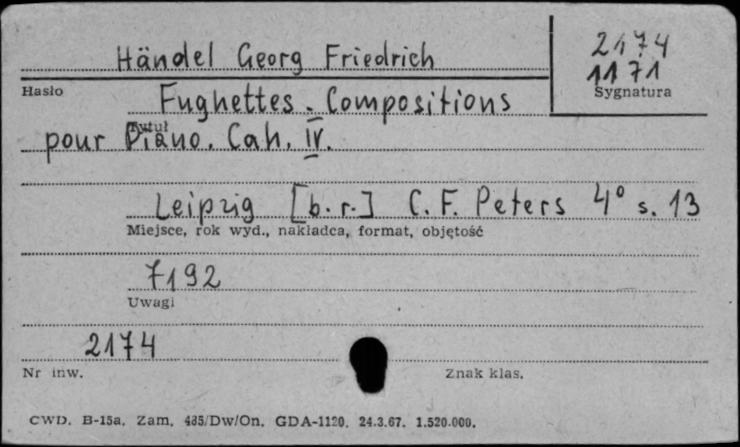 2174
Händel Georg Friedrich
1171
Hasło
Sygnatura
Fughettes. Compositions
Tytuł
pour Piano. Cah. IV.
Leipzig [b.r.] C.F. Peters 4° s. 13
Miejsce, rok wyd., nakładca, format, objętość
7192
Uwagi
2174
Nr inw.
Znak klas.
CWD. B-15a. Zam. 485/Dw/On. GDA-1120. 24.3.67. 1.520.000.